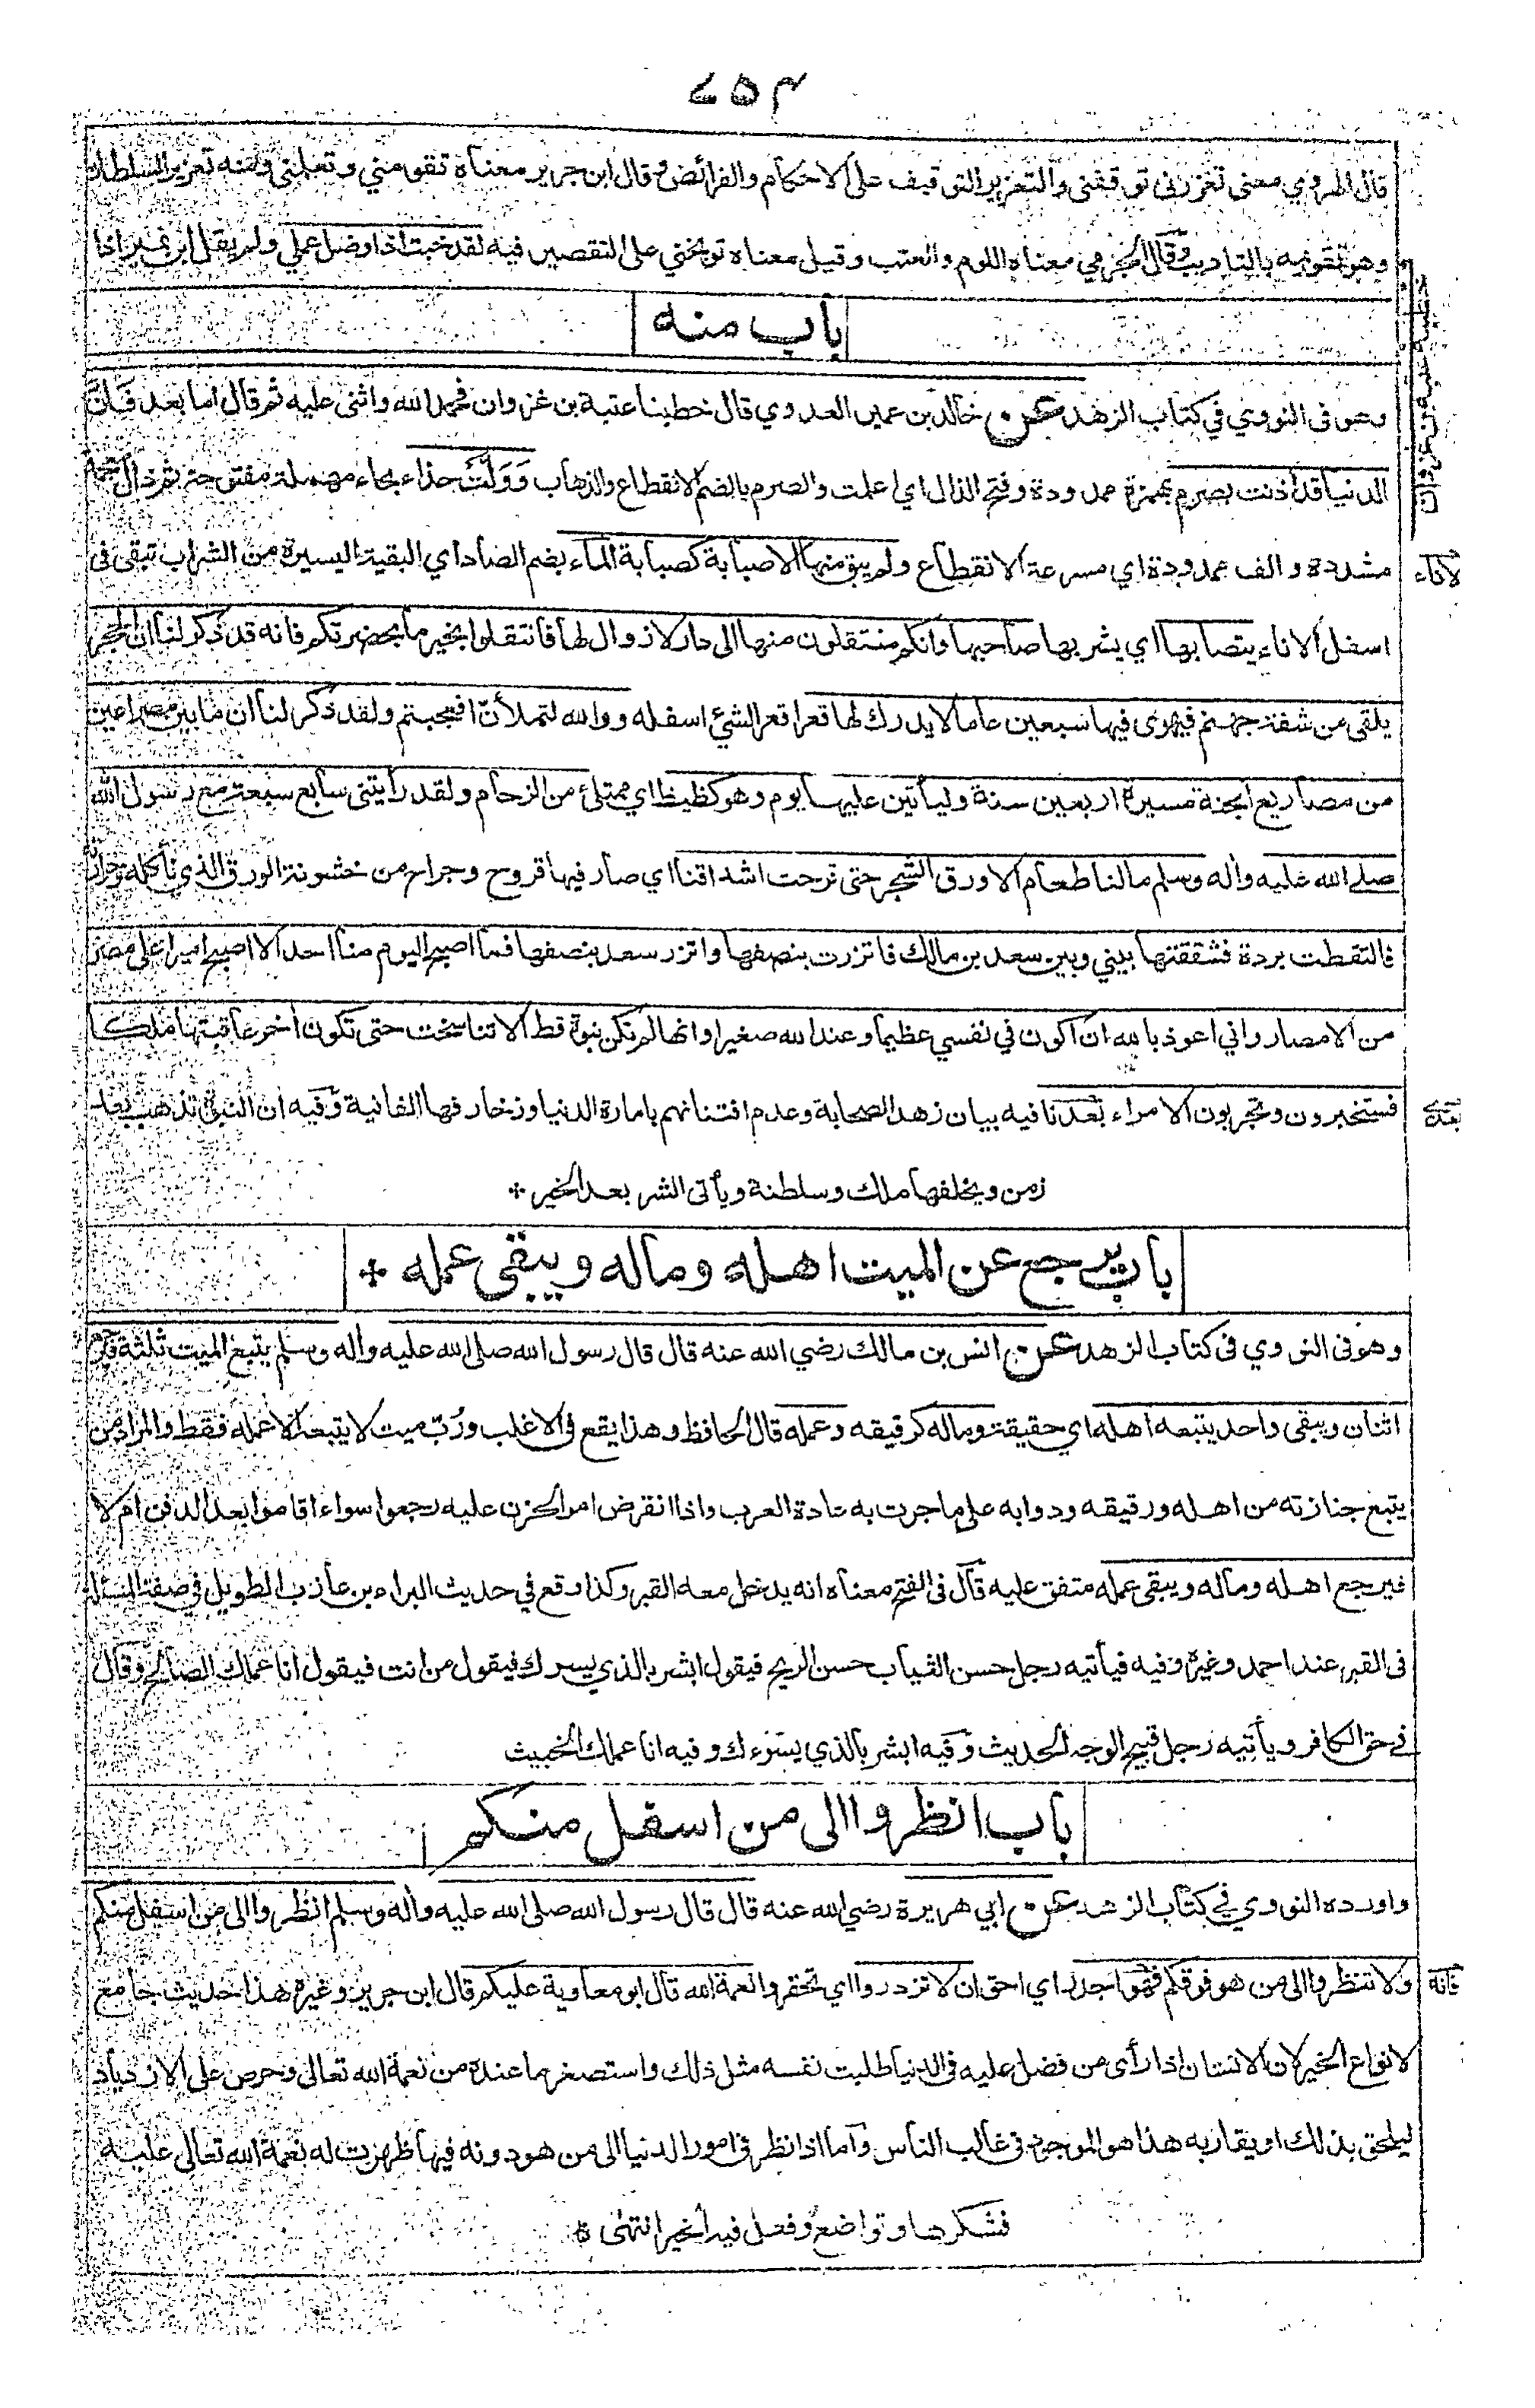 ٤٥٣
قال الهروي معنى تعزرني توقفني والتعزير التوقيف على الاحكام والفرائض وقال ابن جرير معناه تقومني وتعلمني ومنه تعزير السلطان
وهو تقويمه بالتاديب وقال الجرمي معناه اللوم والعتب وقيل معناه توبخني على التقصير فيه لقد خبت اذا وضل عملي ولم يقل ابن نمير اذا
باب منه
وهو فى النووي في كتاب الزهد عن خالد بن عمير العدوي قال خطبنا عتبة بن غزوان فحمد الله واثنى عليه ثم قال اما بعد فَاِنَّ
الدنيا قد اذنت بصرم بهمزة ممدودة وفتح الذال اي اعلمت والصرم بالضم الانقطاع والذهاب وَوَلَّتْ حذاء بحاء مهملة مفتوحة ثم ذال معجمة
مشددة والف ممدودة اي مسرعة الانقطاع ولم يبق منها الا صبابة كصبابة الماء بضم الصاد اي البقية اليسيرة من الشراب تبقى فى
الاناء
اسفل الاناء يتصابها اي يشربها صاحبها وانكم منتقلون منها الى دار لا زوال لها فانتقلوا بخير ما بحضرتكم فانه قد ذكر لنا ان الحجر
يلقى من شفة جهنم فيهوى فيها سبعين عاما لا يدرك لها قعرا قعر الشئ اسفله ووالله لتملأنّ افعجبتم ولقد ذكر لنا ان ما بين مصراعين
من مصاريع الجنة مسيرة اربعين سنة وليأتين عليها يوم وهو كظيظ اي ممتلئ من الزحام ولقد رأيتني سابع سبعة مع رسول الله
صلى الله عليه واله وسلم مالنا طعام الا ورق الشجر حتى قرحت اشداقنا اي صار فيها قروح وجراح من خشونة الورق الذي نأكله وحرارته
فالتقطت بردة فشققتها بيني وبين سعد بن مالك فاتزرت بنصفها واتزر سعد بنصفها فما اصبح اليوم منا احد الا اصبح اميرا على مصر
من الامصار واني اعوذ بالله ان اكون في نفسي عظيما وعند الله صغيرا وانها لم تكن نبوة قط الا تناسخت حتى تكون اخر عاقبتها ملكا
فستخبرون وتجربون الامراء بعدنا فيه بيان زهد الصحابة وعدم افتتنانهم بامارة الدنيا وزخارفها الفانية وفيه ان النبوة تذهب بعد
بعدى
زمن ويخلفها ملك وسلطنة ويأتى الشر بعد الخير *
باب يرجع عن الميت اهله وماله ويبقى عمله *
وهو فى النووي فى كتاب الزهد عن انس بن مالك رضي الله عنه قال قال رسول الله صلى الله عليه واله وسلم يتبع الميت ثلثة فيرجع
اثنان ويبقى واحد يتبعه اهله اي حقيقة وماله كرقيقه وعمله قال الحافظ وهذا يقع فى الاغلب ورُبّ ميت لا يتبعه الا عمله فقط والمراد من
يتبع جنازته من اهله ورقيقه ودوابه على ما جرت به عادة العرب واذا انقرض امر الحزن عليه رجعوا سواء اقاموا بعد الدفن ام لا
فيرجع اهله وماله ويبقى عمله متفق عليه قال فى الفتح معناه انه يدخل معه القبر وكذا وقع في حديث البراء بن عازب الطويل في صفة المسألة
فى القبر عند احمد وغيره وفيه فيأتيه رجل حسن الثياب حسن الريح فيقول ابشر بالذي يسرك فيقول من انت فيقول انا عملك الصالح وقال
في حق الكافر ويأتيه رجل قبيح الوجه الحديث وفيه ابشر بالذي يسوءك وفيه انا عملك الخبيث
باب انظروا الى من اسفل منكم
واورده النووي في كتاب الزهد عن ابي هريرة رضي الله عنه قال قال رسول الله صلى الله عليه واله وسلم انظروا الى من اسفل منكم
ولا تنظروا الى من هو فوقكم فهو اجدر اي احق ان لا تزدروا اي تحقروا نعمة الله قال ابو معاوية عليكم قال ابن جرير وغيره هذا حديث جامع
فانه
لانواع الخير لان الانسان اذا رأى من فضل عليه فى الدنيا طلبت نفسه مثل ذلك واستصغر ما عنده من نعمة الله تعالى وحرص على الازدياد
ليلحق بذلك او يقاربه هذا هو الموجود فى غالب الناس واما اذا نظر فى امور الدنيا الى من هو دونه فيها ظهرت له نعمة الله تعالى عليه
فشكرها وتواضع وفعل فيه الخير انتهى *